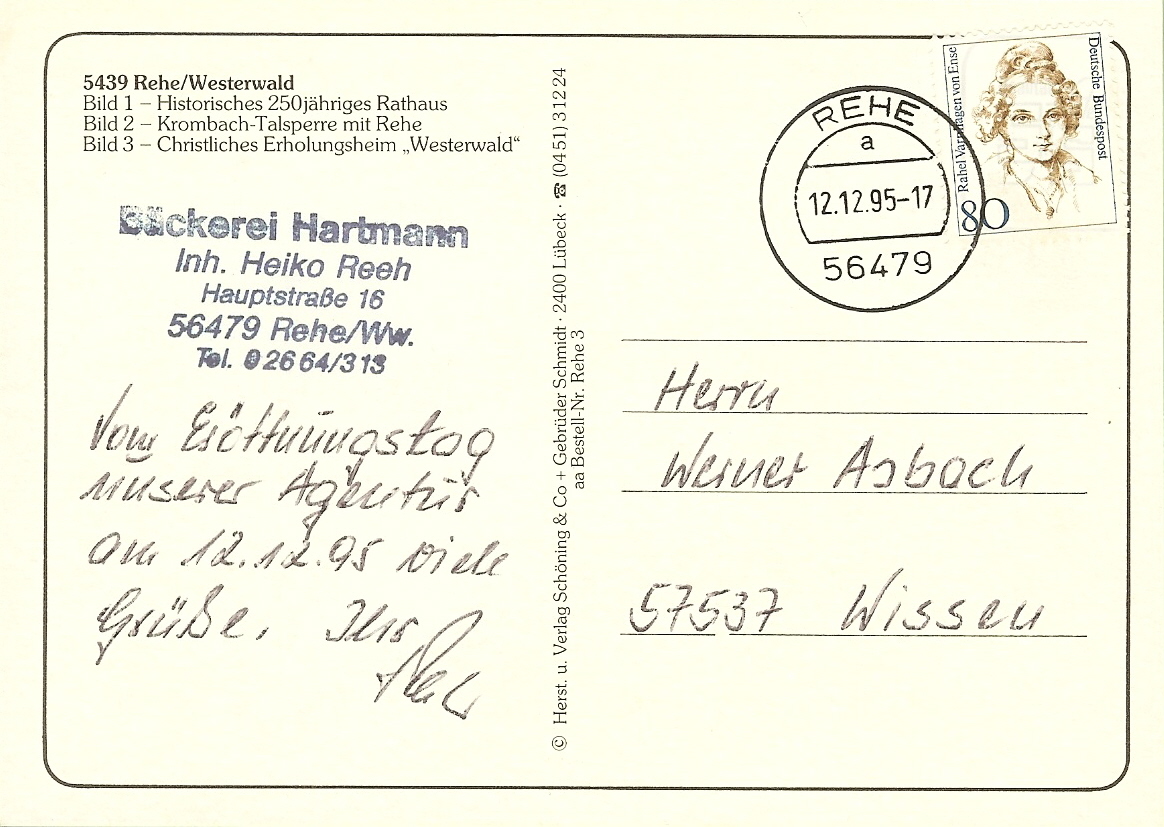 5439 Rehe/Westerwald
Bild 1 – Historisches 250jähriges Rathaus
Bild 2 – Krombach-Talsperre mit Rehe
Bild 3 – Christliches Erholungsheim „Westerwald“
Bäckerei Hartmann
Inh. Heiko Reeh
Hauptstraße 16
56479 Rehe/Ww.
Tel. 02664/313
Vom Eröffnungstag
unserer Agentur
am 12.12.95 viele
Grüße. Ihr
© Herst. u. Verlag Schöning & Co + Gebrüder Schmidt · 2400 Lübeck · ☎ (04 51) 3 12 24
aa Bestell-Nr. Rehe 3
REHE
a
12.12.95-17
56479
Rahel Varnhagen von Ense
Deutsche Bundespost
80
Herrn
Werner Asbach
57537 Wissen